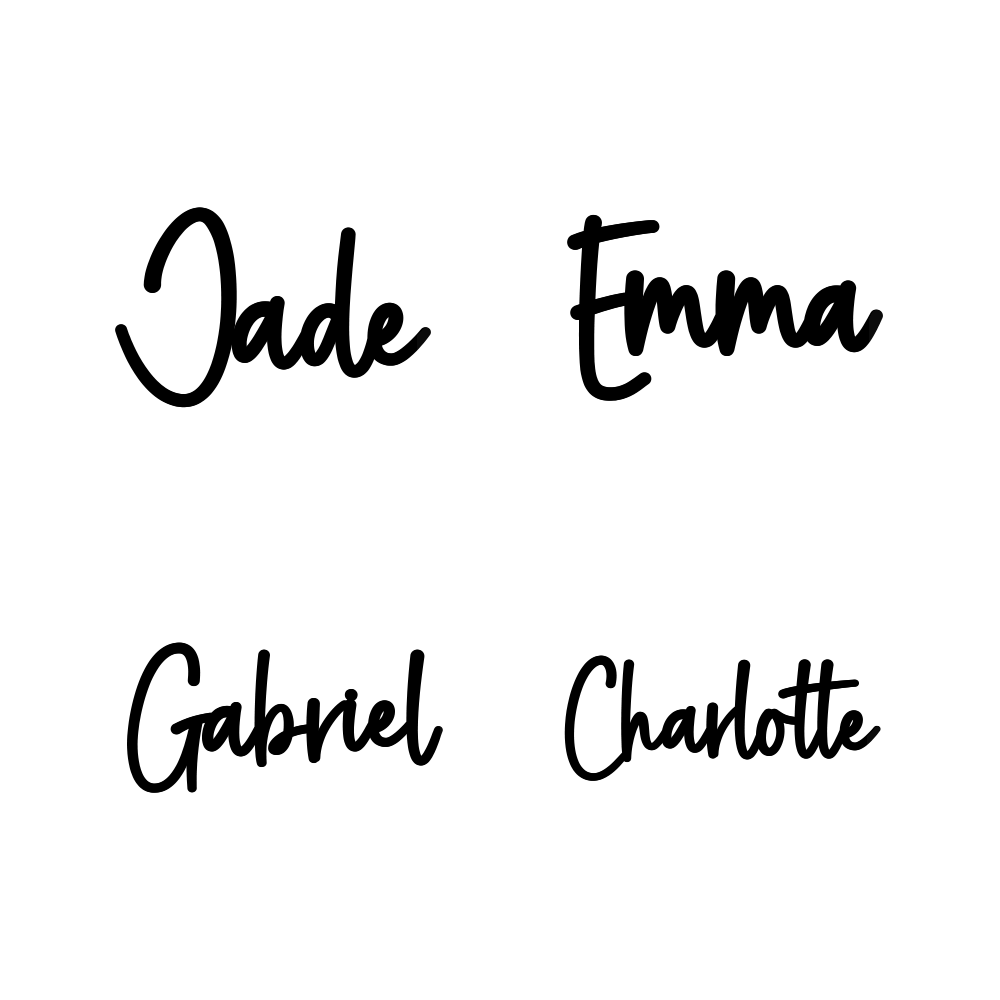 Jade Emma
Gabriel Charlotte